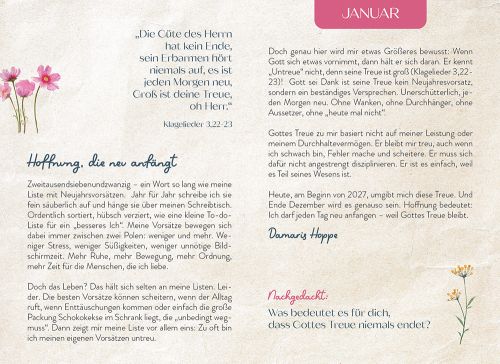 „Die Güte des Herrn
hat kein Ende,
sein Erbarmen hört
niemals auf, es ist
jeden Morgen neu,
Groß ist deine Treue,
oh Herr.“
Klagelieder 3,22-23
Hoffnung, die neu anfängt
Zweitausendsiebenundzwanzig – ein Wort so lang wie meine
Liste mit Neujahrsvorsätzen. Jahr für Jahr schreibe ich sie
fein säuberlich auf und hänge sie über meinen Schreibtisch.
Ordentlich sortiert, hübsch verziert, wie eine kleine To-do-
Liste für ein „besseres Ich“. Meine Vorsätze bewegen sich
dabei immer zwischen zwei Polen: weniger und mehr. We-
niger Stress, weniger Süßigkeiten, weniger unnötige Bild-
schirmzeit. Mehr Ruhe, mehr Bewegung, mehr Ordnung,
mehr Zeit für die Menschen, die ich liebe.
Doch das Leben? Das hält sich selten an meine Listen. Lei-
der. Die besten Vorsätze können scheitern, wenn der Alltag
ruft, wenn Enttäuschungen kommen oder einfach die große
Packung Schokokekse im Schrank liegt, die „unbedingt weg-
muss“. Dann zeigt mir meine Liste vor allem eins: Zu oft bin
ich meinen eigenen Vorsätzen untreu.
JANUAR
Doch genau hier wird mir etwas Größeres bewusst: Wenn
Gott sich etwas vornimmt, dann hält er sich daran. Er kennt
„Untreue“ nicht, denn seine Treue ist groß (Klagelieder 3,22-
23)! Gott sei Dank ist seine Treue kein Neujahrsvorsatz,
sondern ein beständiges Versprechen. Unerschütterlich, je-
den Morgen neu. Ohne Wanken, ohne Durchhänger, ohne
Aussetzer, ohne „heute mal nicht“.
Gottes Treue zu mir basiert nicht auf meiner Leistung oder
meinem Durchhaltevermögen. Er bleibt mir treu, auch wenn
ich schwach bin, Fehler mache und scheitere. Er muss sich
dafür nicht angestrengt disziplinieren. Er ist es einfach, weil
es Teil seines Wesens ist.
Heute, am Beginn von 2027, umgibt mich diese Treue. Und
Ende Dezember wird es genauso sein. Hoffnung bedeutet:
Ich darf jeden Tag neu anfangen – weil Gottes Treue bleibt.
Damaris Hoppe
Nachgedacht:
Was bedeutet es für dich,
dass Gottes Treue niemals endet?